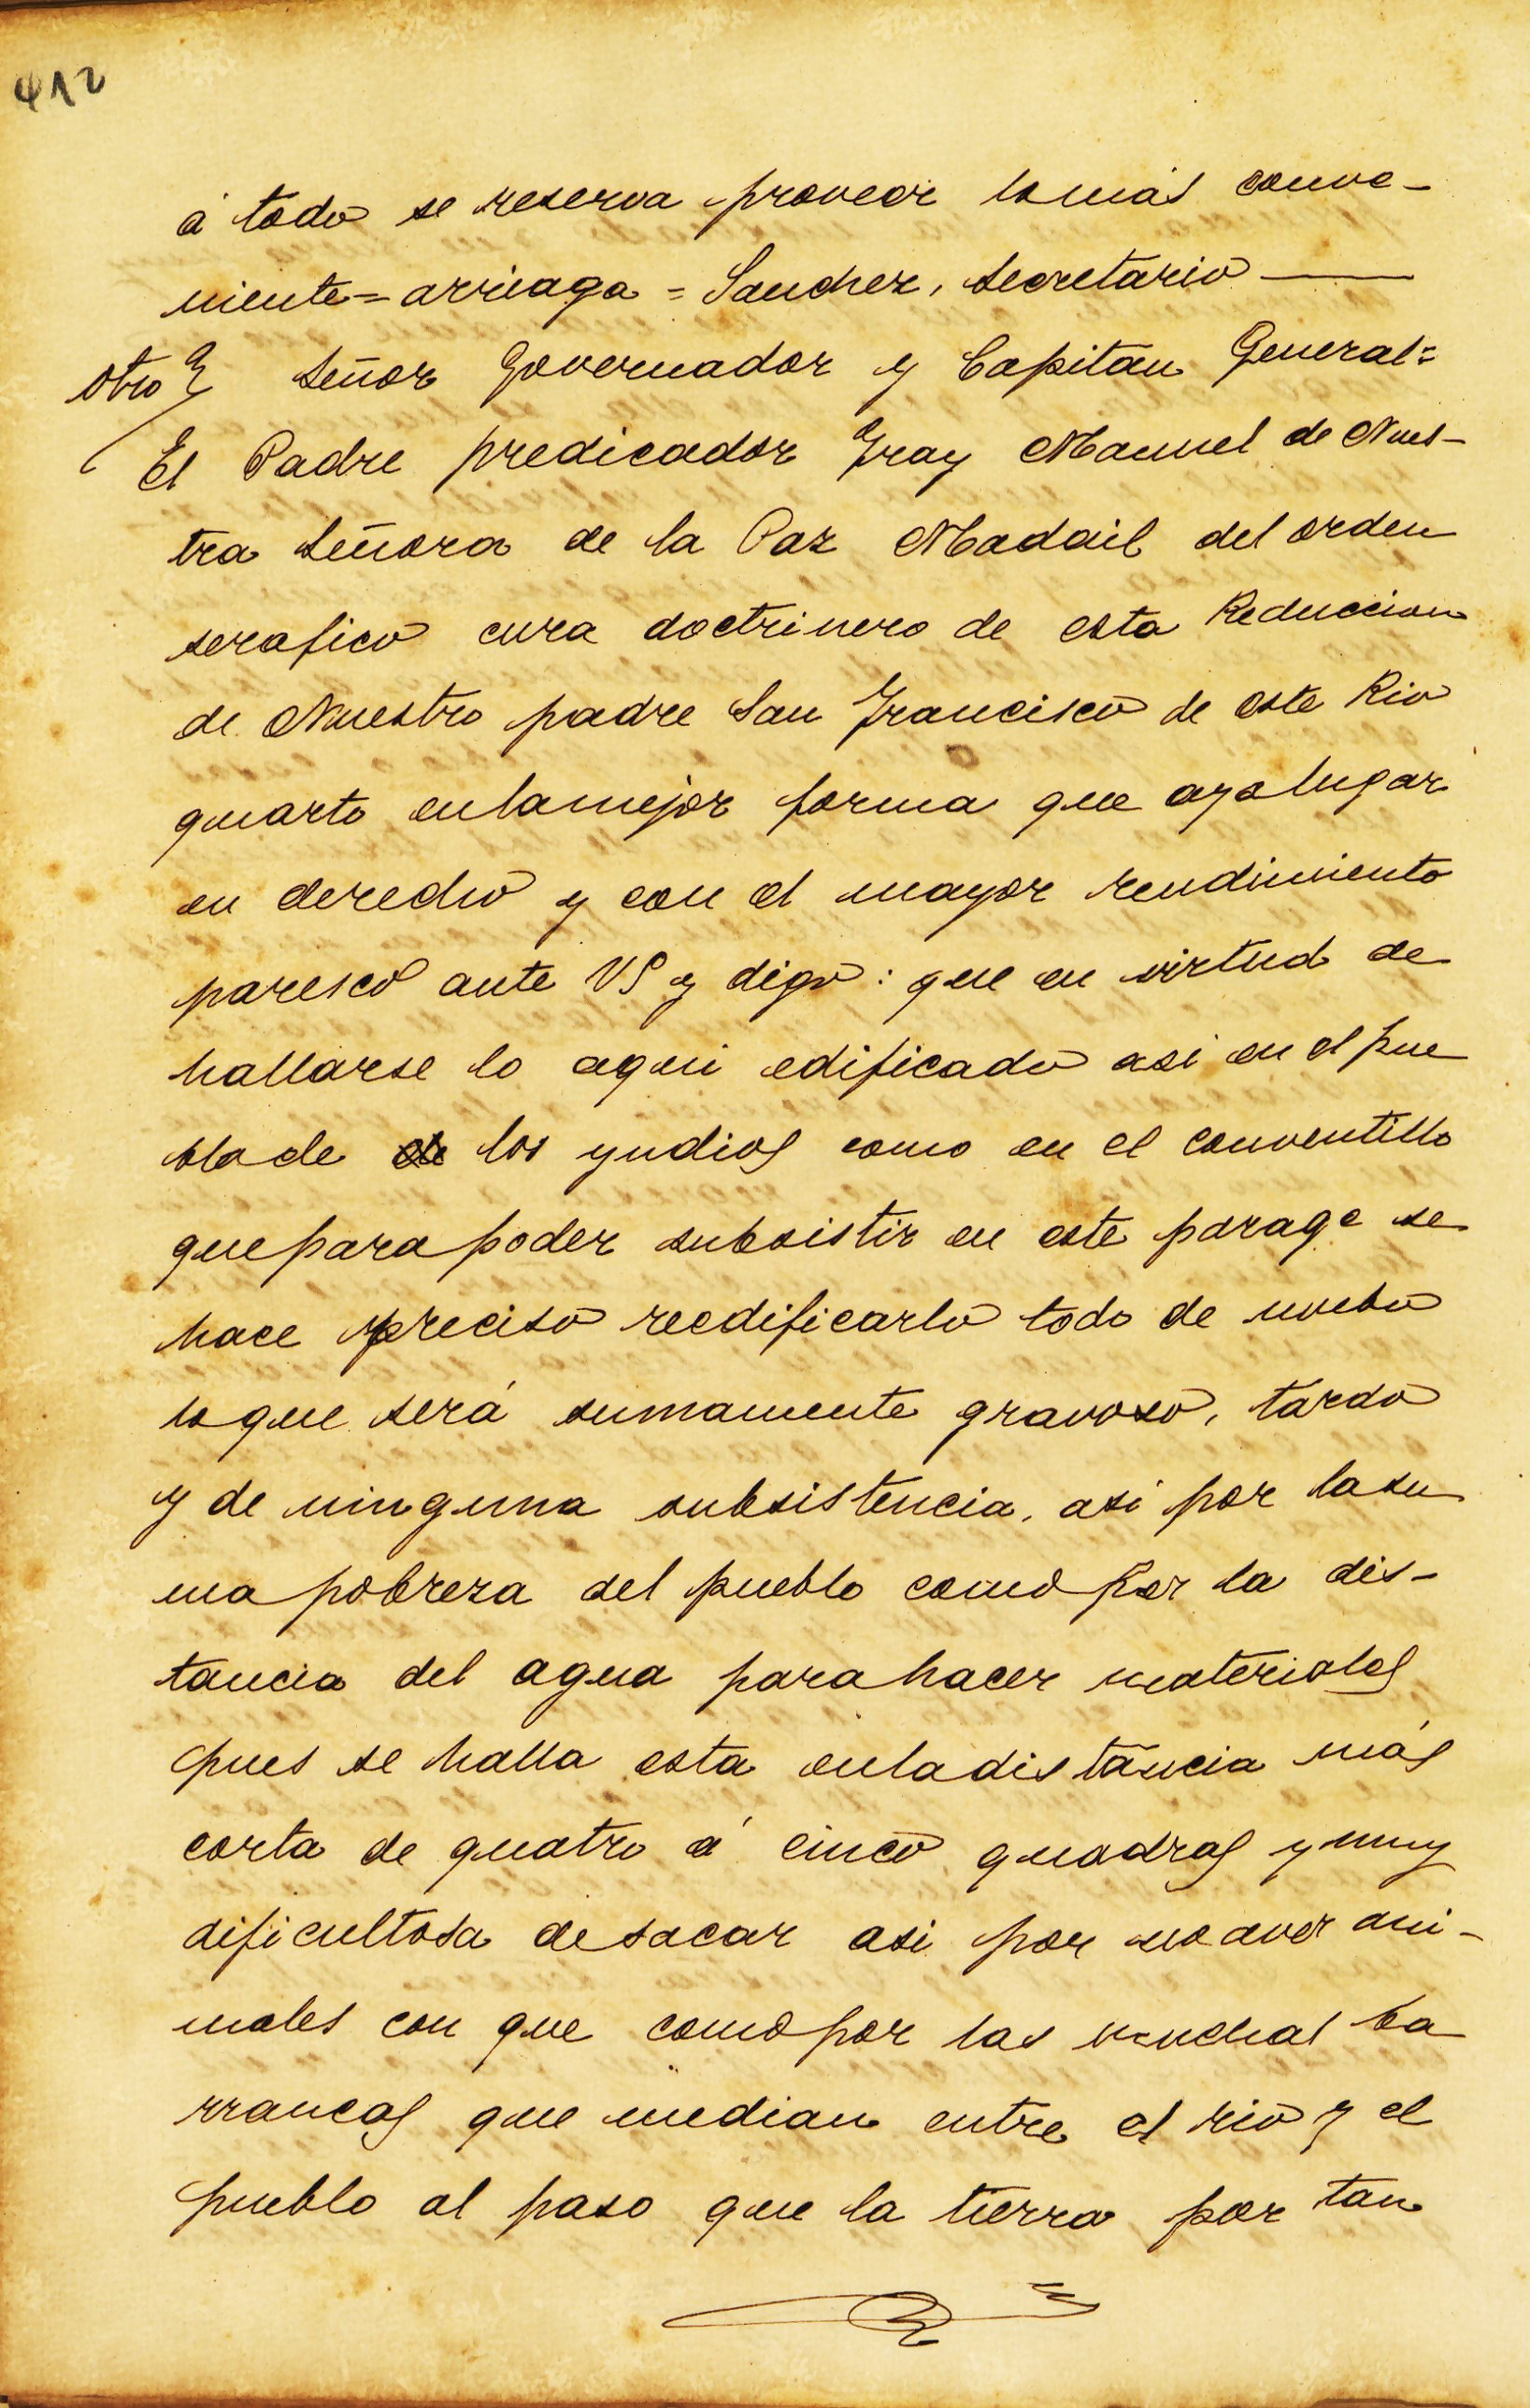 412
á todo se reserva proveer lomás conve-
niente = arriaga = Sanchez, secretario
otro} Señor Governador y Capitan General =
El Padre predicador Fray Manuel de Nues-
tra Señora de la Paz Madail del orden
serafico cura doctrinero de esta Reduccion
de Nuestro padre San Francisco de este Rio
quarto enlamejor forma que ayalugar
en derecho y con el mayor rendimiento
paresco ante VS y digo: que en virtud de
hallarse lo aqui edificado asi en el pue
blode los yndios como en el conventillo
queparapoder subsistir en este parage se
hace preciso reedificarlo todo de nuebo
loque será sumamente gravoso, tardo
y de ninguna subsistencia, asi por lasu
ma pobreza del pueblo como por la dis-
tancia del agua parahacer materiales
pues se halla esta enladistancia más
corta de quatro á cinco quadras y muy
dificultosa desacar asi por noaver ani-
males con que comopor las muchas ba
rrancas que median entre el rio y el
pueblo al paso que la tierra por tan